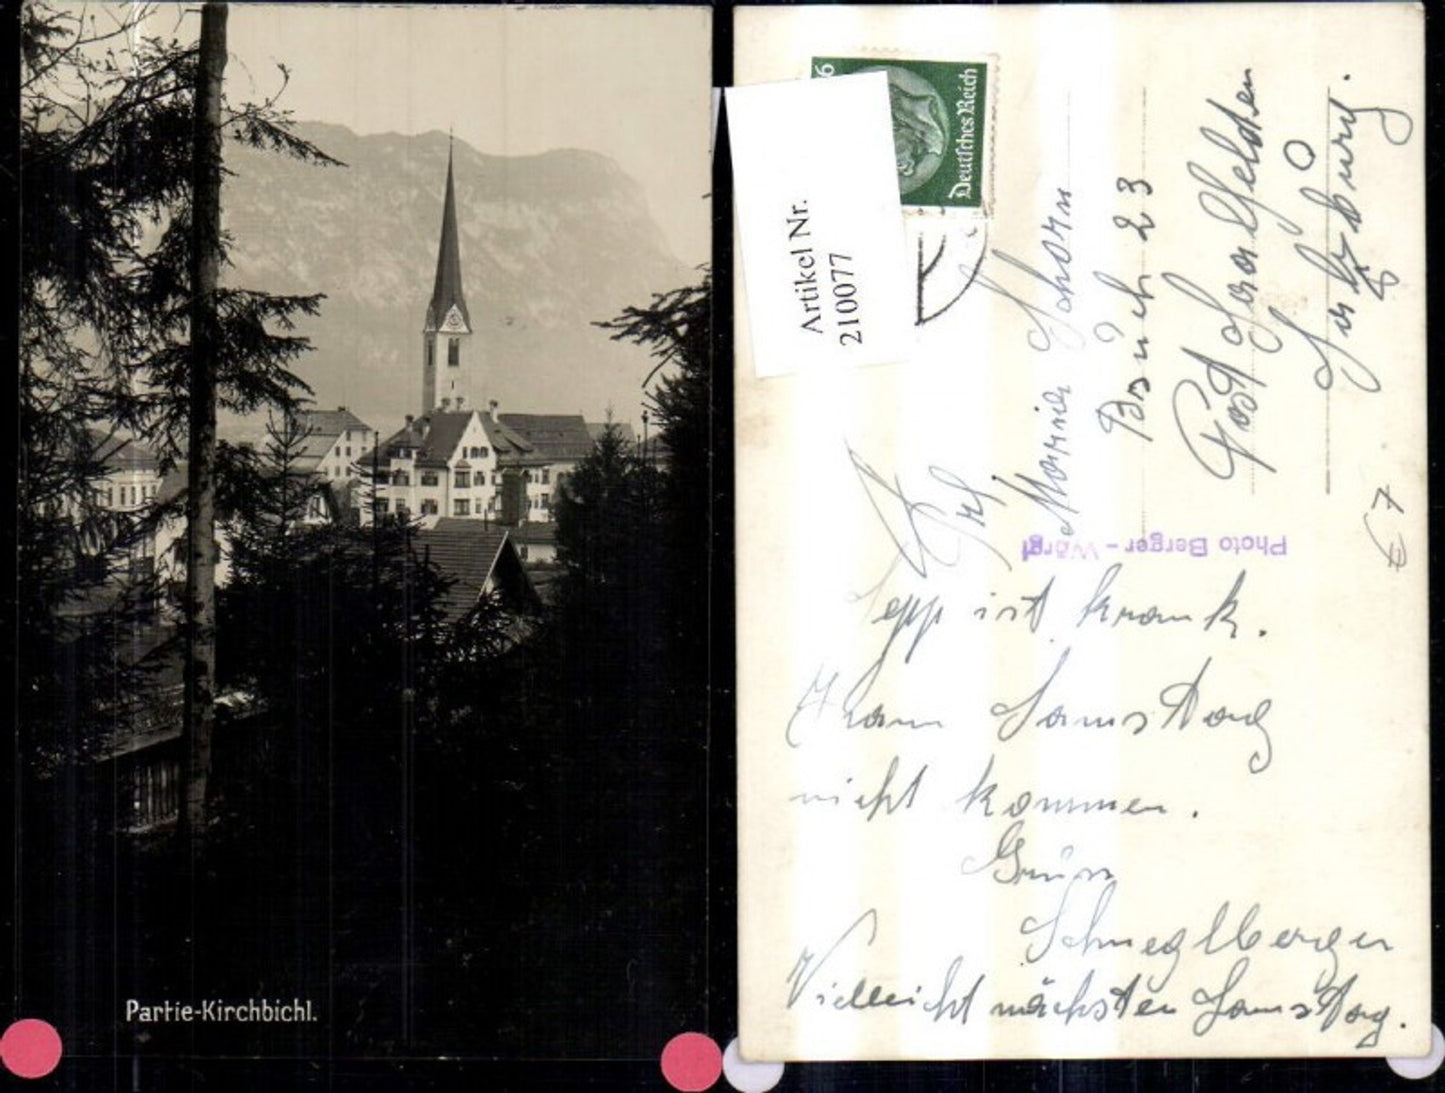 Partie-Kirchbichl.
6
Deutsches Reich
Artikel Nr.
210077
Frl.
Maria Schorn
Bruch 23
Post
Salzburg.
€ 7
Photo Berger - Wörgl
Sepp ist krank.
Kann Samstag
nicht kommen.
Schneglberger
Vielleicht nächsten Samstag.